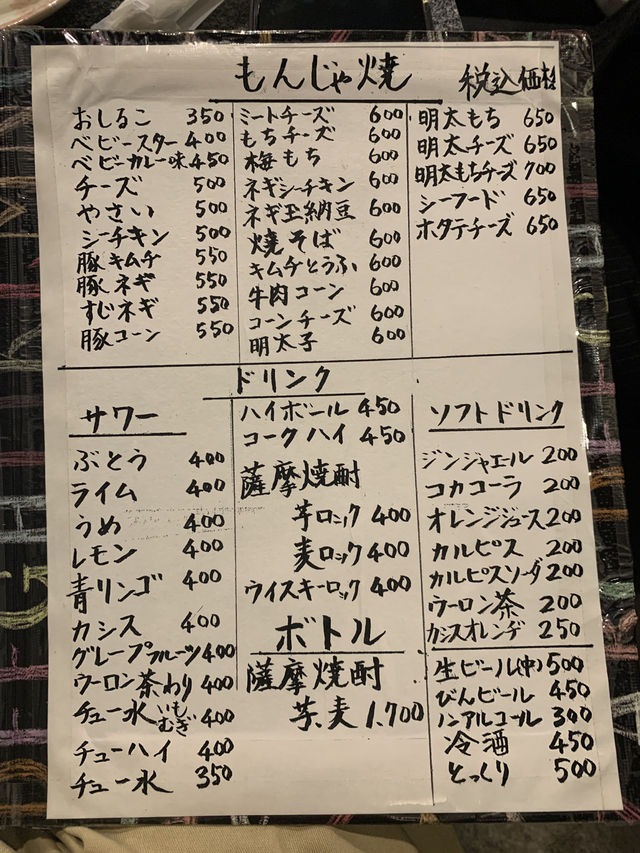 もんじゃ焼
税込価格
おしるこ 350
ベビースター 400
ベビーカレー味 450
チーズ 500
やさい 500
シーチキン 500
豚キムチ 550
豚ネギ 550
すじネギ 550
豚コーン 550
ミートチーズ 600
もちチーズ 600
梅もち 600
ネギシーチキン 600
ネギ玉納豆 600
焼そば 600
キムチとうふ 600
牛肉コーン 600
コーンチーズ 600
明太子 600
明太もち 650
明太チーズ 650
明太もちチーズ 700
シーフード 650
ホタテチーズ 650
ドリンク
サワー
ぶとう 400
ライム 400
うめ 400
レモン 400
青リンゴ 400
カシス 400
グレープフルーツ 400
ウーロン茶わり 400
チュー水 いも むぎ 400
チューハイ 400
チュー水 350
ハイボール 450
コークハイ 450
薩摩焼酎
芋ロック 400
麦ロック 400
ウイスキーロック 400
ボトル
薩摩焼酎
芋、麦 1,700
ソフトドリンク
ジンジャエール 200
コカコーラ 200
オレンジジュース 200
カルピス 200
カルピスソーダ 200
ウーロン茶 200
カシスオレンヂ 250
生ビール(中) 500
びんビール 450
ノンアルコール 300
冷酒 450
とっくり 500